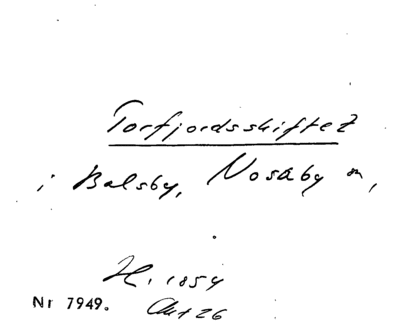 Torfjordsskiftet
i Balsby, Nosaby sn,
H. 1854
Nr 7949. Akt 26